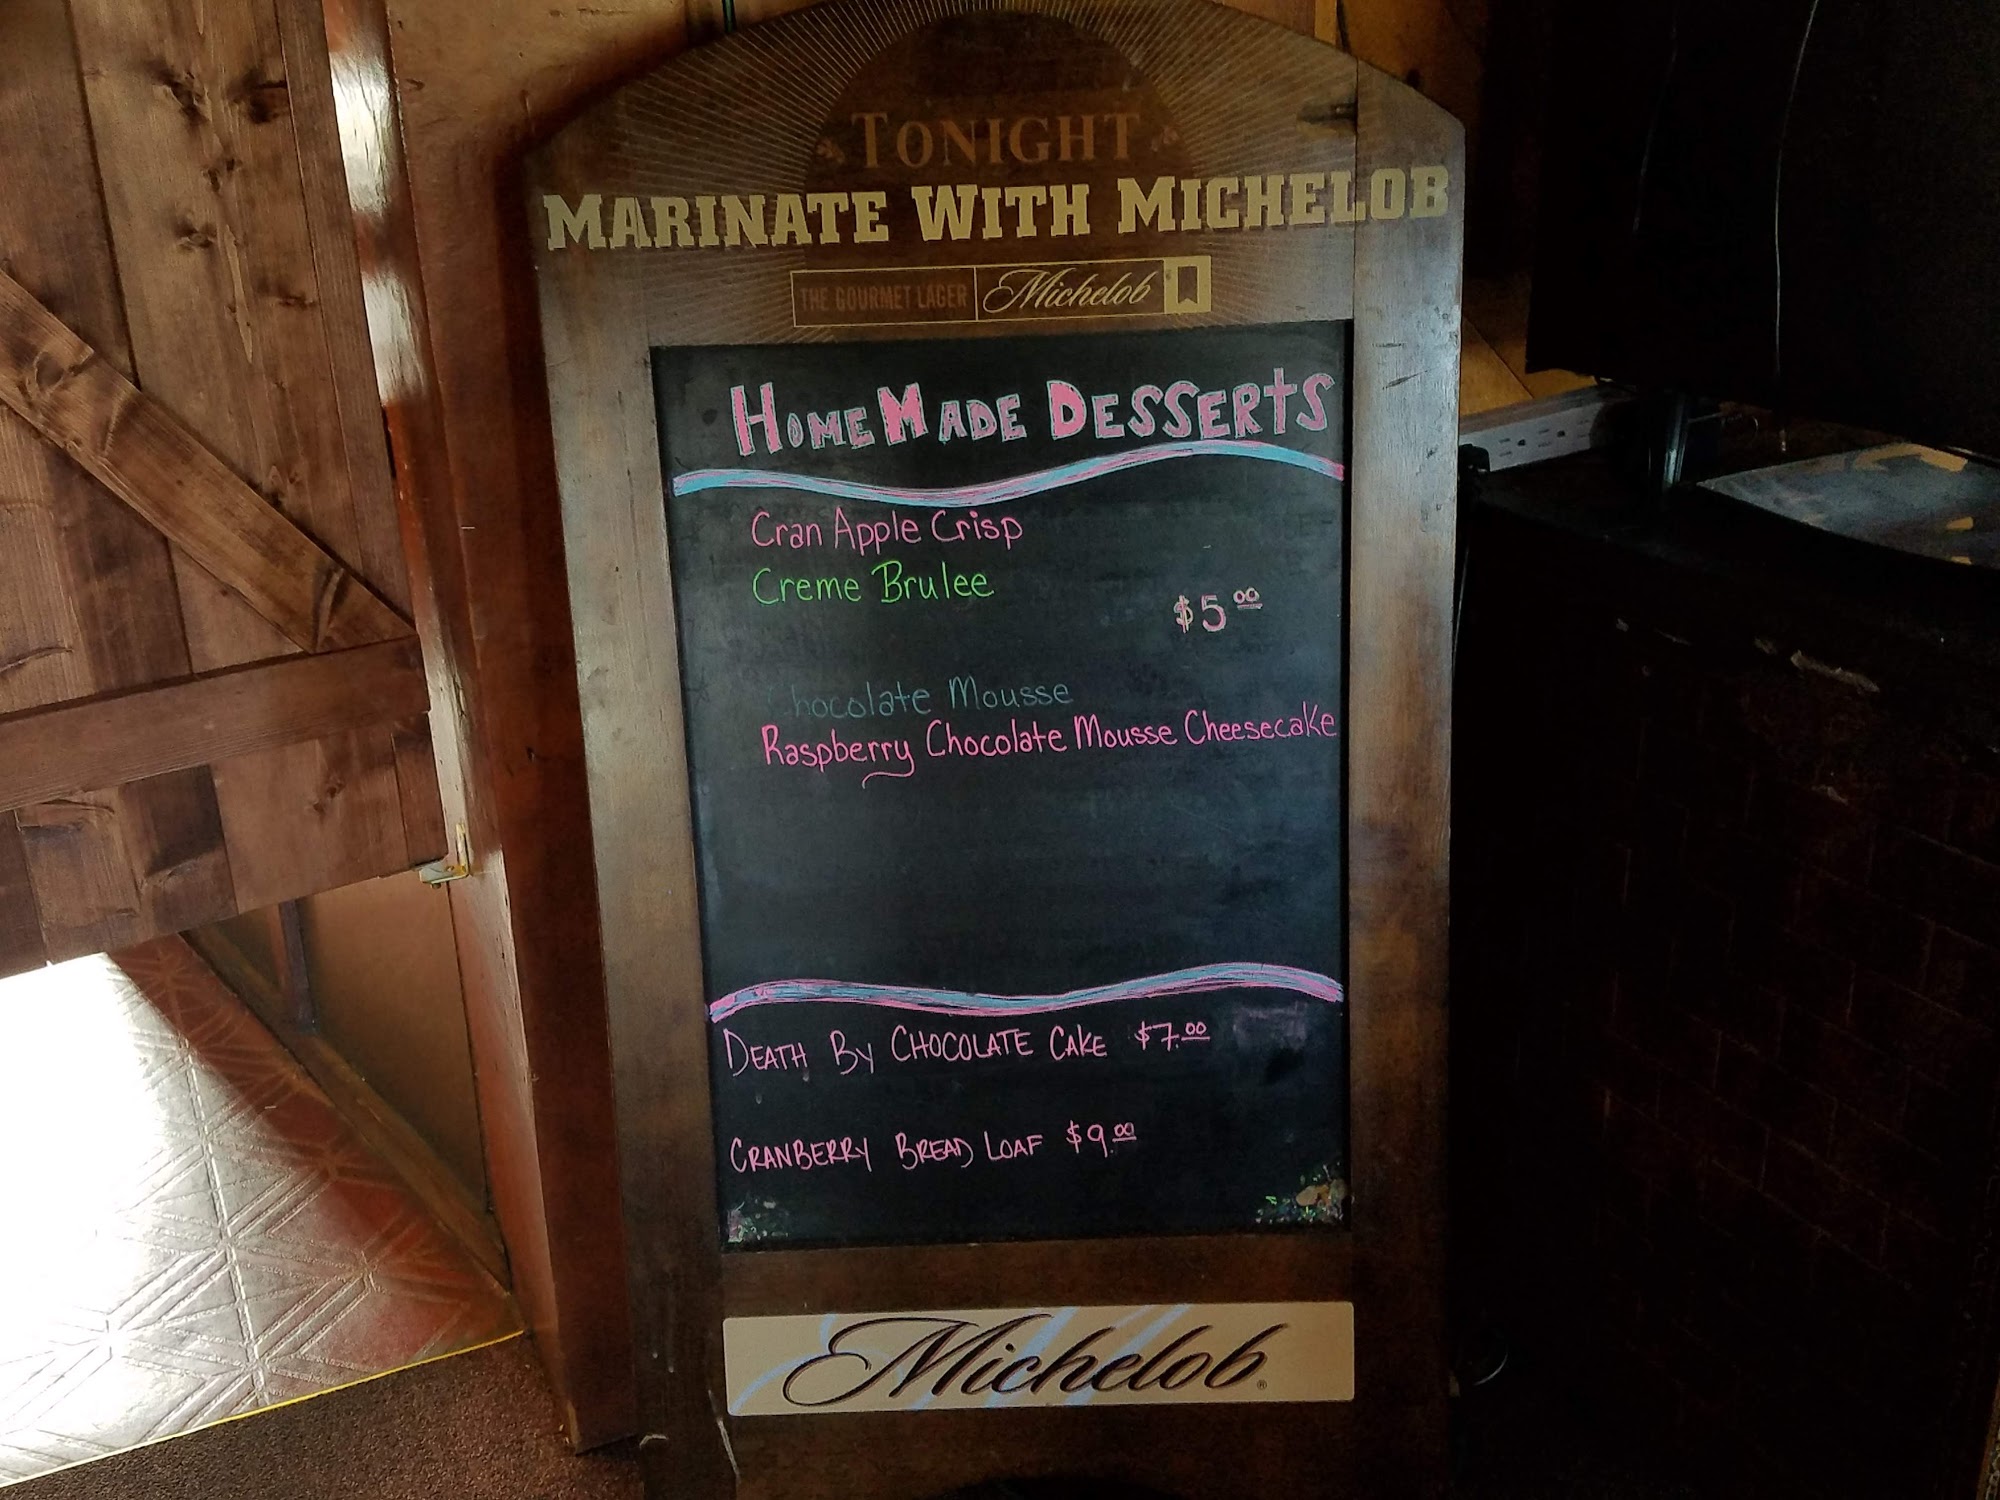 TONIGHT
MARINATE WITH MICHELOB
THE GOURMET LAGER Michelob
HOMEMADE DESSERTS
Cran Apple Crisp
Creme Brulee
$5.00
Chocolate Mousse
Raspberry Chocolate Mousse Cheesecake
DEATH BY CHOCOLATE CAKE $7.00
CRANBERRY BREAD LOAF $9.00
Michelob®